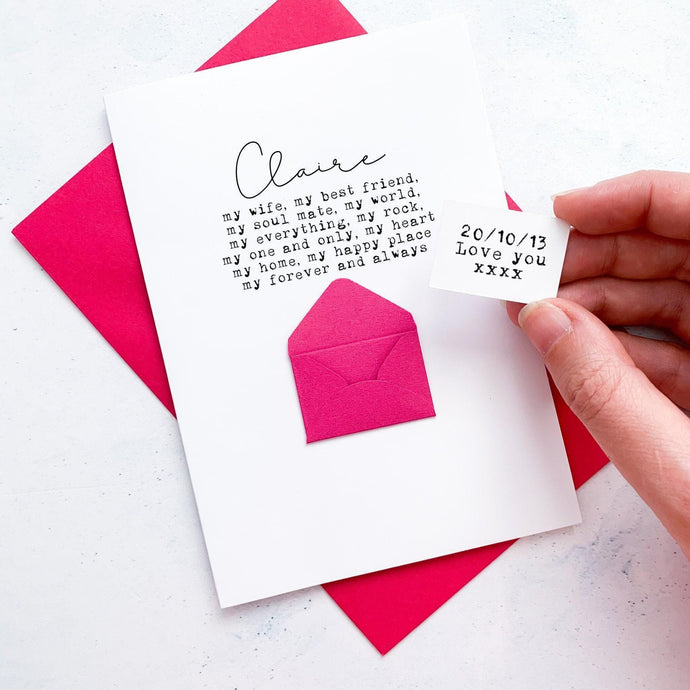 Claire
my wife, my best friend,
my soul mate, my world,
my everything, my rock,
my one and only, my heart
my home, my happy place
my forever and always
20/10/13
Love you
xxxx